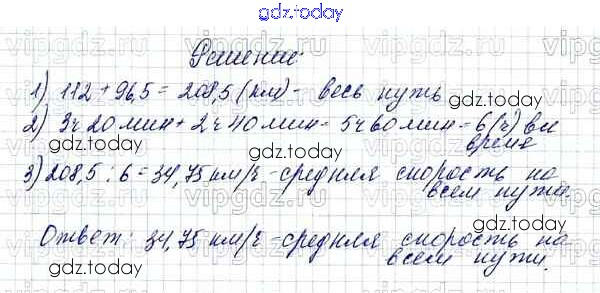 gdz.today
Решение:
1) 112 + 96,5 = 208,5 (км) - весь путь
2) 3ч 20 мин + 2ч 40 мин = 5ч 60 мин = 6 (ч) все
время
3) 208,5 : 6 = 34,75 км/ч - средняя скорость на
всем пути.
Ответ: 34,75 км/ч - средняя скорость на
всем пути.
gdz.today
gdz.today
gdz.today
gdz.today
gdz.today
gdz.today
gdz.today